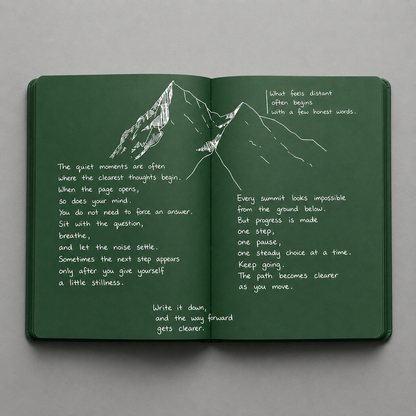 The quiet moments are often
where the clearest thoughts begin.
When the page opens,
so does your mind.
You do not need to force an answer.
Sit with the question,
breathe,
and let the noise settle.
Sometimes the next step appears
only after you give yourself
a little stillness.
What feels distant
often begins
with a few honest words.
Every summit looks impossible
from the ground below.
But progress is made
one step,
one pause,
one steady choice at a time.
Keep going.
The path becomes clearer
as you move.
Write it down,
and the way forward
gets clearer.